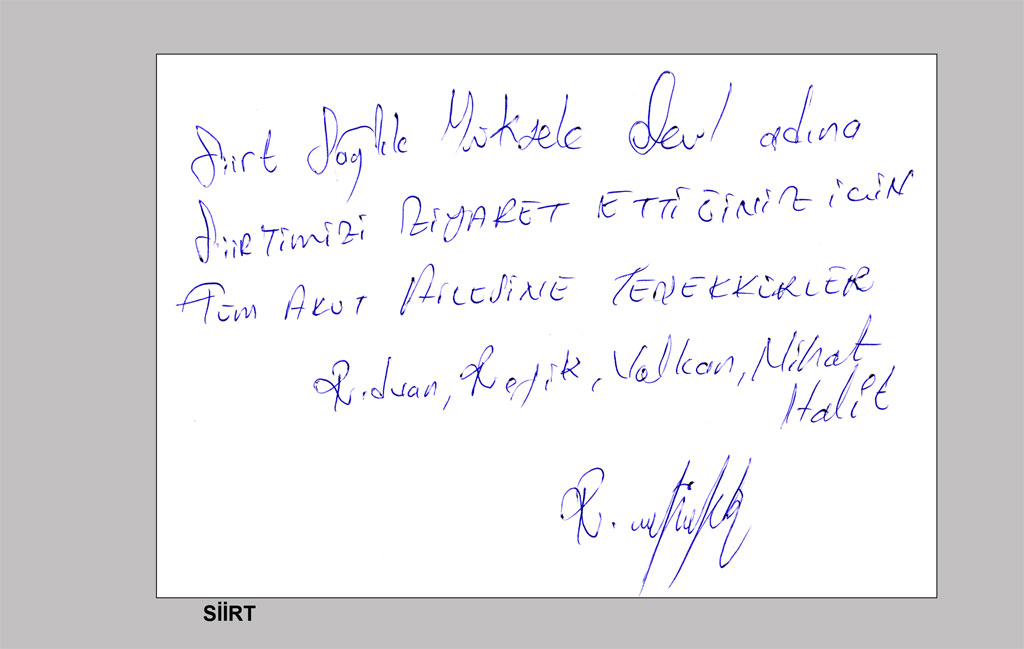 Siirt Sağlık Yüksek Okul adına
SiiRTimiZi ZiYARET ETTiĞiNiZ iÇiN
TÜM AKUT AiLESiNE TEŞEKKÜRLER
Rıdvan, Refik, Volkan, Nihat
Halit
SiiRT